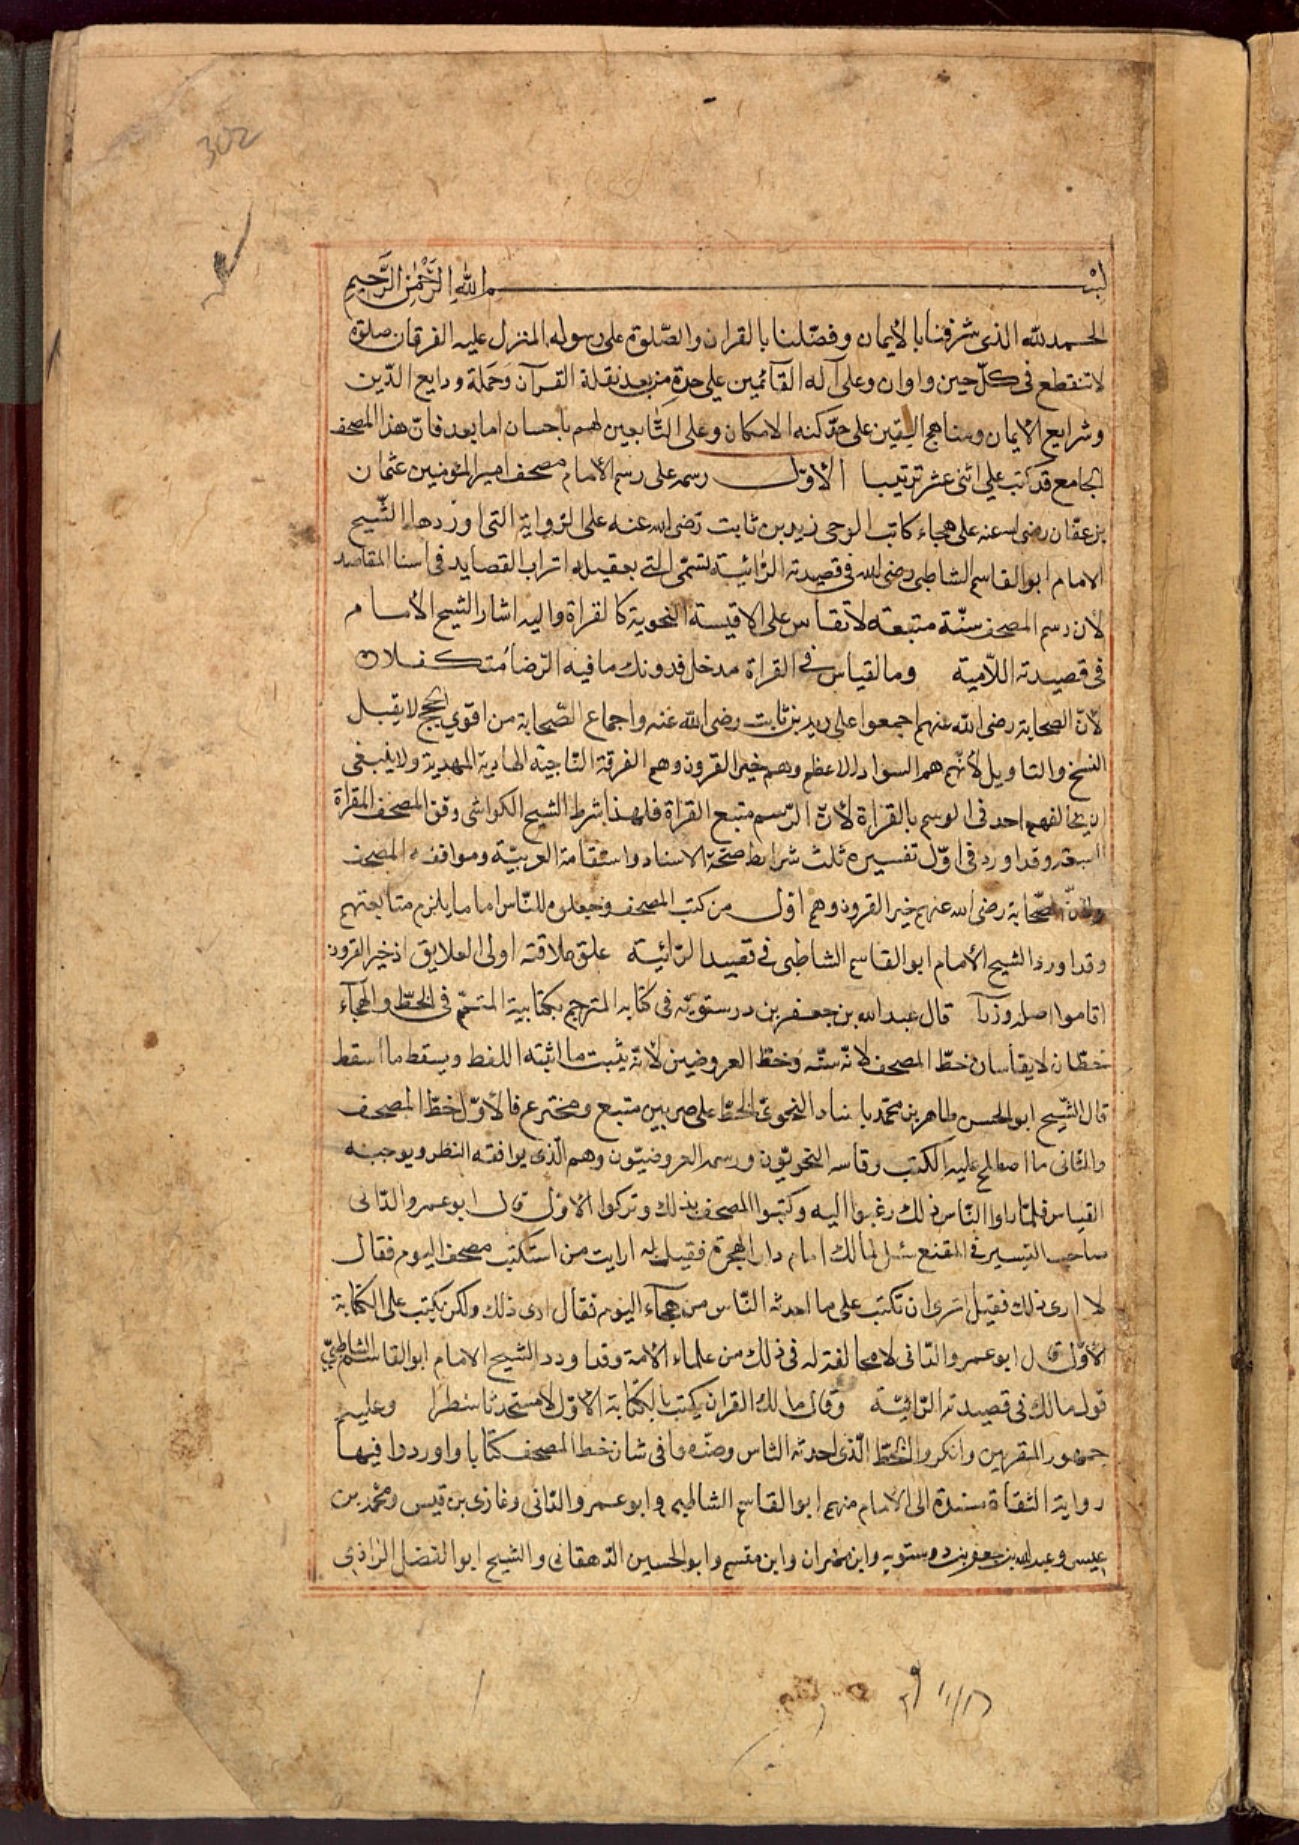 302
بسم الله الرحمن الرحيم
الحمد لله الذى شرفنا بالأيمان وفضّلنا بالقران والصّلوة على رسوله المنزل عليه الفرقان صلوة
لا تنقطع فى كلّ حين واوان وعلى آله القآئمين على حدة من بعد نقلة القرآن وحملة ودايع الدّين
وشرايع الأيمان ومناهج اليقين على حدّ كنه الامكان وعلى التّابعين لهم باحسان اما بعد فانّ هذا المصحف
الجامع قد كتب على اثنى عشر ترتيبا الأوّل رسمه على رسم الأمام مصحف امير المؤمنين عثمان
بن عفّان رضى الله عنه على هجاء كاتب الوحى زيد بن ثابت رضى الله عنه على الرّواية التى اوردها الشّيح
الامام ابو القاسم الشاطبى رضى الله فى قصيدته الرّائيّة تسمّى التى بعقيله اتراب القصايد فى اسنا المقاصد
لأن رسم المصحف سنّة متبعة لا تقاس على الاقيسة النحوية كالقراة واليه اشار الشيح الأمام
فى قصيدته اللّامية وما لقياس فى القراة مدخل فدونك ما فيه الرّضا متكفلان
لأنّ الصحابة رضى الله عنهم اجمعوا على زيد بن ثابت رضى الله عنه واجماع الصّحابة من اقوى الحجج لا يقبل
النسخ والتاويل لأنّهم هم السواد الاعظم وهم خير القرون وهم الفرقة النّاجية الهادية المهدية ولا ينبغى
ان يخالفهم احد فى الوسم بالقراة لأنّ الرّسم متبع القراة فلهذا شرط الشيح الكواشى وفق المصحف المقراة
السبعة وقد اورد فى اوّل تفسيره ثلث شرايط صحّة الاسناد واستقامة العربيّة وموافقة المصحف
ولأنّ الصّحابة رضى الله عنهم خير القرون وهم اوّل من كتب المصحف وجعلوه للنّاس اماما يلزم متابعتهم
وقد اورد الشيح الأمام ابو القاسم الشاطبى فى قصيد الرّائيّة علق علاقته اولى العلايق اذ خير القرون
اقاموا اصله وزرآ قال عبد الله بن جعفر بن درستويّه فى كتابه المترجم بكتابية المتمّم فى الخطّ والهجآء
خطّان لا يقاسان خطّ المصحف لانّه سنّه وخطّ العروضيين لأنّه يثبت ما اثبته اللفط ويسقط ما اسقط
قال الشّيح ابو الحسن طاهر بن محمّد باشاد النحوىّ الخطّ على ضربين متبع ومخترع فالأوّل خطّ المصحف
والثانى ما اصطلح عليه الكتب وقاسه النحويّون ورسمه العروضيّون وهم الّذى يوافقه النظر ويوجبه
القياس فلمّا راوا النّاس ذلك رغبوا اليه وكتبوا المصحف بذلك وتركوا الاوّل قال ابو عمرو الدّانى
صاحب التيسير فى المقنع سئل لمالك امام دار الهجرة فقيل له ارايت من استكتب مصحف اليوم فقال
لا ارى ذلك فقيل اترى ان تكتب على ما احدثه النّاس من هجآء اليوم فقال ارى ذلك ولكن يكتب على الكتابة
الأوّل قال ابو عمرو الدّانى لا مخالفة له فى ذلك من علماء الأمة وقد اورد الشيح الامام ابو القاسم الشاطبىّ
قول مالك فى قصيدته الرّائيّة وقال مالك القران يكتب بالكتابة الأوّل لا مستحدثا سطرا وعليه
جمهور المقرئين وانكروا الخطّ الّذى احدثه الناس وصنّفوا فى شان خط المصحف كتابا واوردوا فيها
رواية الثقاة مسندة الى الامام منهم ابو القاسم الشاطبى وابو عمرو الدّانى وغازى بن قيس ومحمّد بن
عيسى وعبد الله بن جعفر بن دروستويه وابن مهران وابن مقسم وابو الحسين الدّهقانى والشيح ابو الفضل الرّاذى